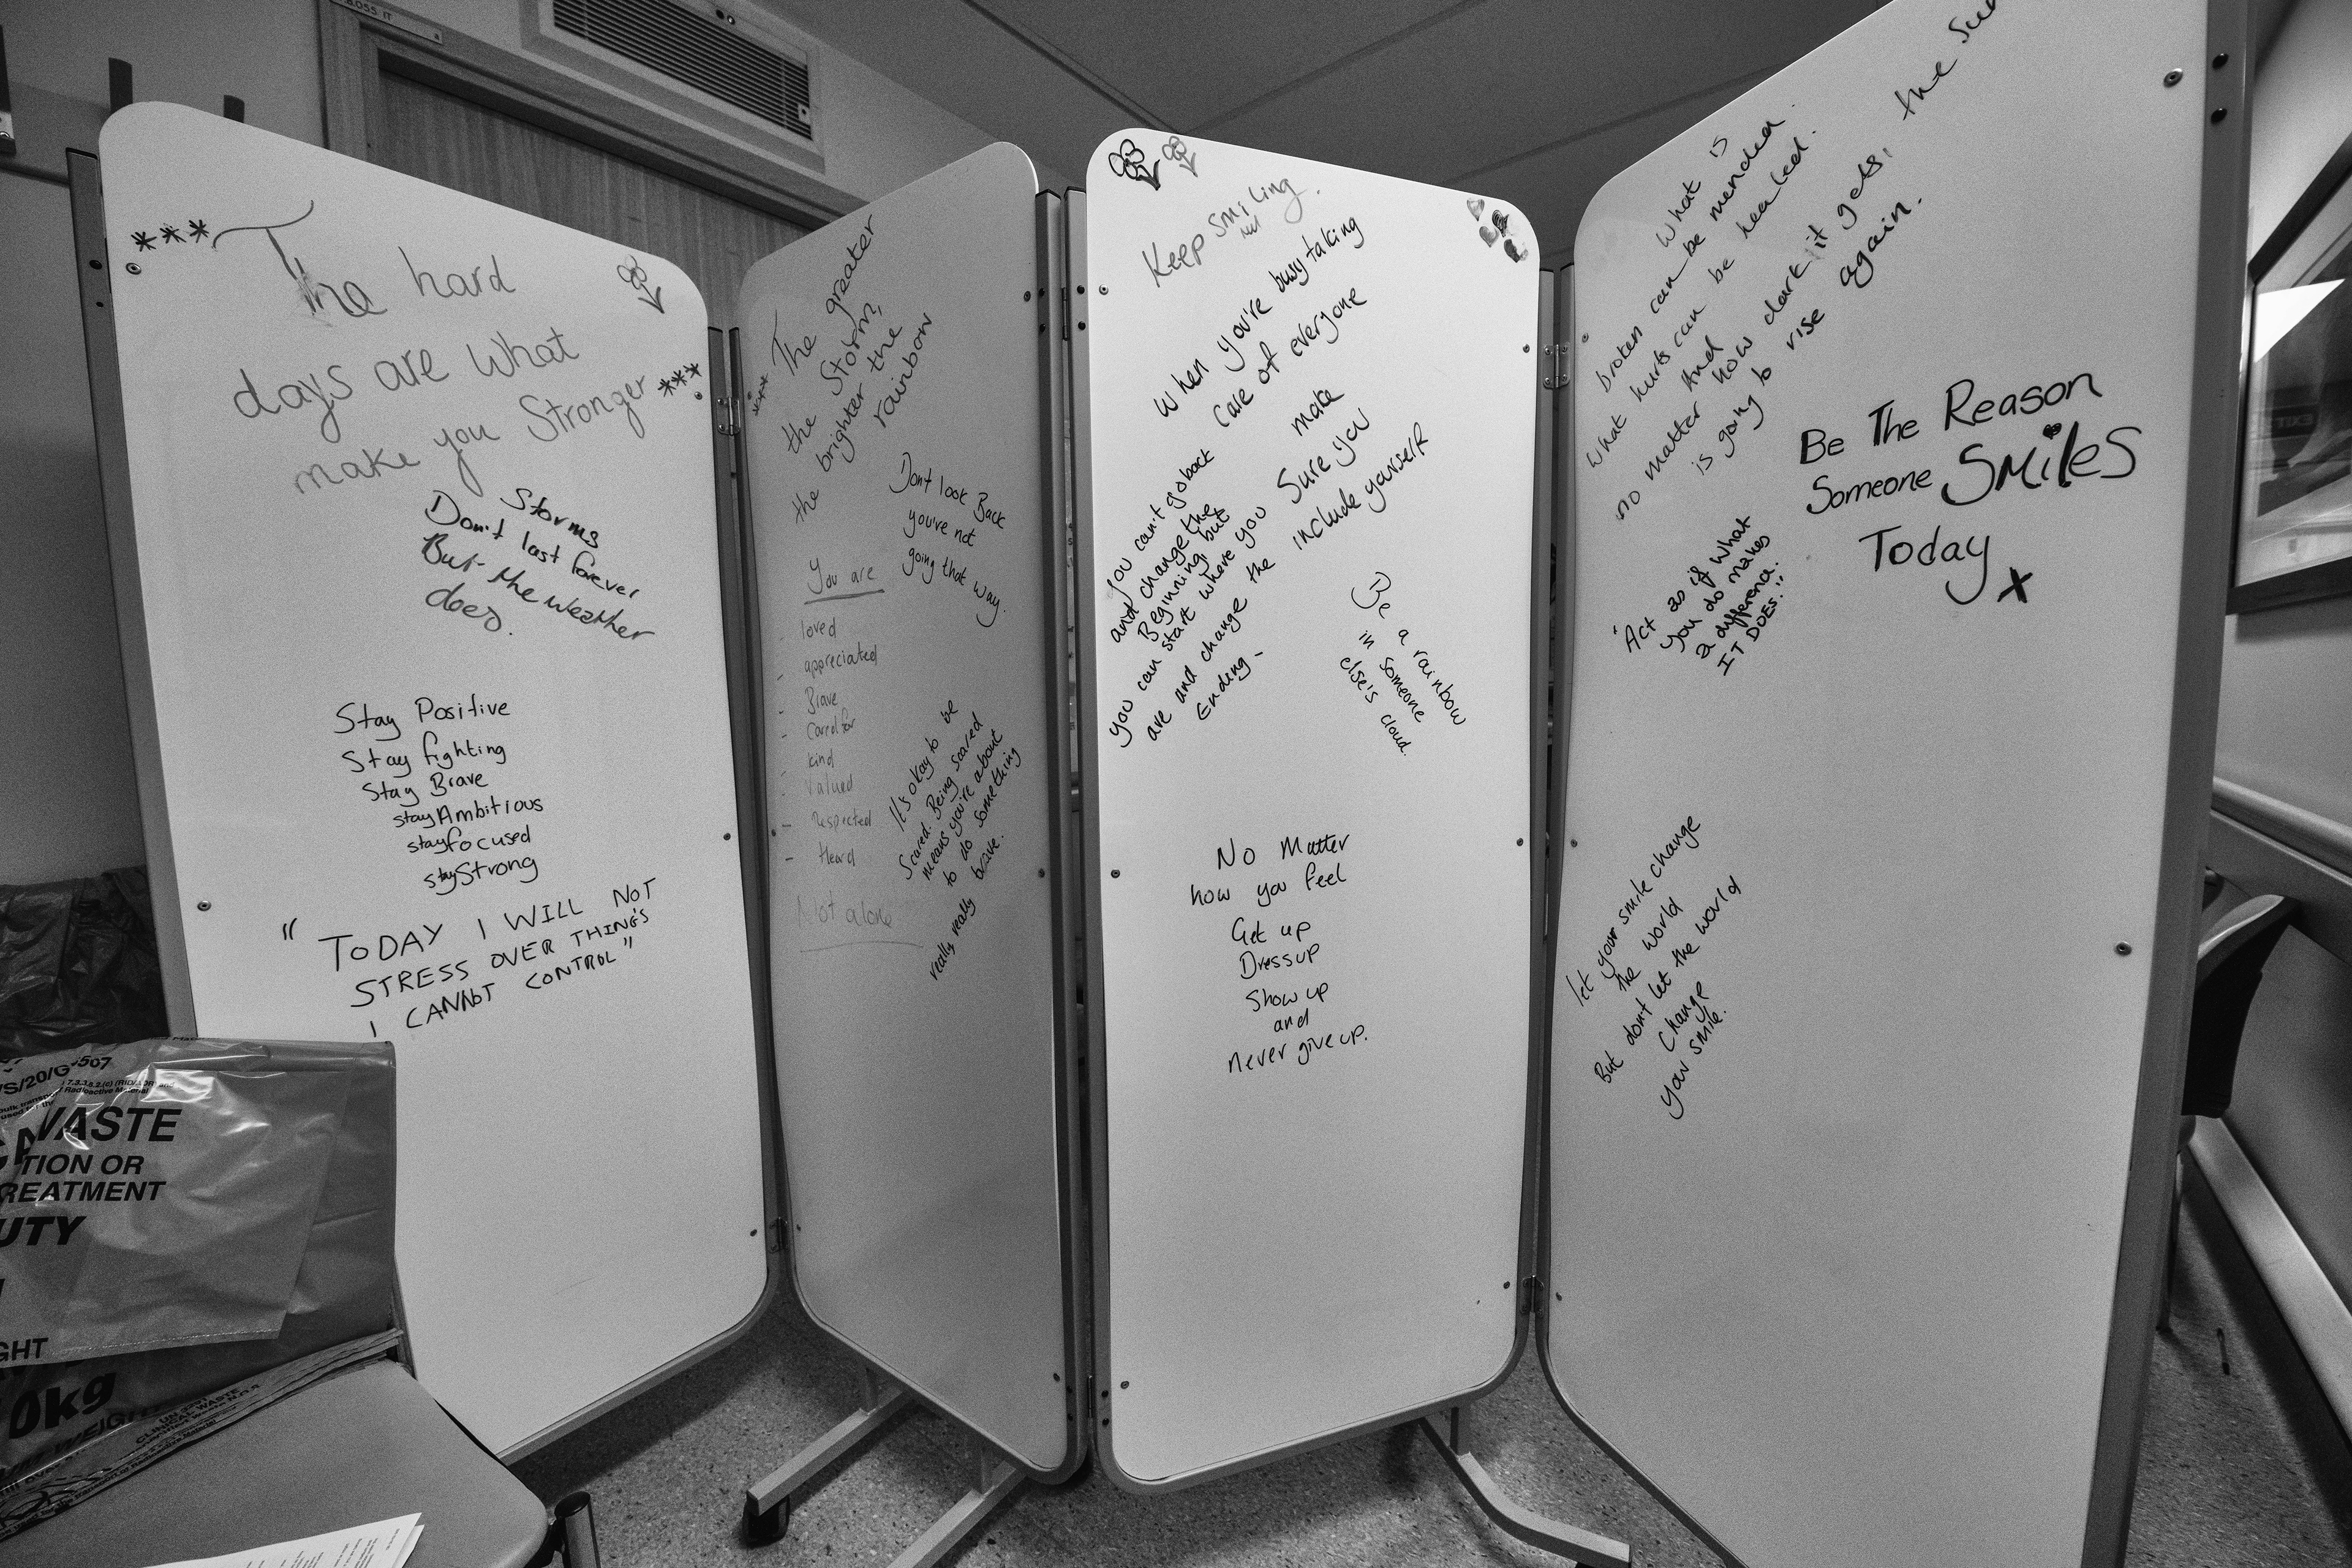 ***The hard
days are what
make you Stronger***
Storms
Don't last forever
But the weather
does.
Stay Positive
Stay fighting
Stay Brave
stay Ambitious
stay focused
stay Strong
"TODAY I WILL NOT
STRESS OVER THINGS
I CANNOT CONTROL"
The greater
the Storm,
the brighter the
rainbow
Don't look Back
you're not
going that way.
You are
- loved
- appreciated
- Brave
- Cared for
- kind
- Valued
- Respected
- Heard
Not alone
It's okay to be
Scared. Being scared
means you're about
to do something
really really brave.
Keep smiling.
When you're busy taking
care of everyone
make
Sure you
include yourself
you can't go back
and change the
Beginning, but
you can start where you
are and change the
Ending-
Be a rainbow
in someone
else's cloud.
No Matter
how you feel
Get up
Dress up
Show up
and
never give up.
What is
broken can be mended
What hurts can be healed.
And
no matter how dark it gets,
the Sun
is going to rise again.
Be The Reason
Someone SMiles
Today x
'Act as if what
you do makes
a difference.
IT DOES."
let your smile change
the world
But dont let the world
Change
your smile.
-507
/S/20/G
Radioactive Material
WASTE
TION OR
REATMENT
UTY
GHT
0kg
CLINICAL WASTE